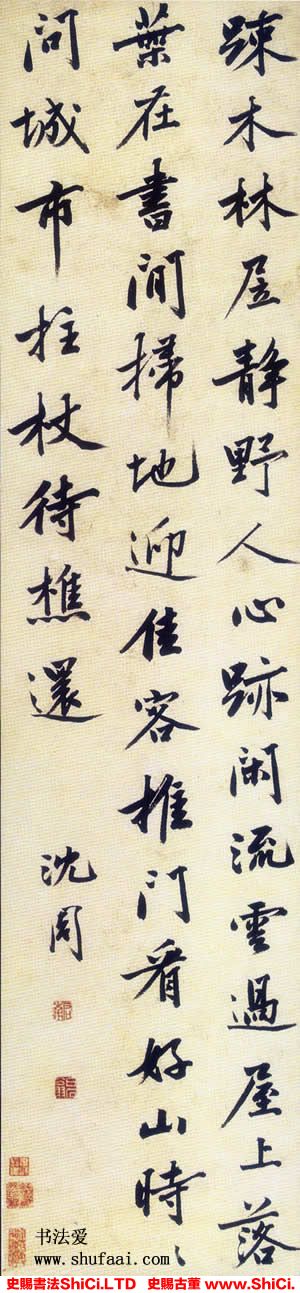 踈木林屋静野人心跡闲流雲過屋上落
葉在書間掃地迎佳客推门看好山時〻
问城市拄杖待樵還
沈周
书法爱
www.shufaai.com
史賜書法ShiCi.LTD 史賜古董 www.ShiCi.Net